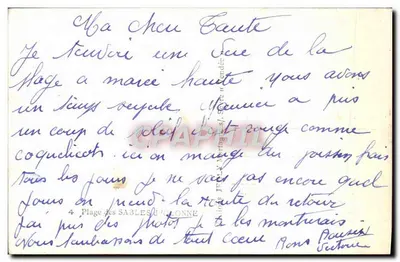 Ma chère Tante
Je t'envoie une vue de la
plage a marée haute nous avons
un temps superbe Maurice a pris
un coup de soleil il est rouge comme
coquelicot. ici on mange du poisson frais
tous les jours je ne sais pas encore quel
jours on prend la route du retour
4 Plage des SABLES D'OLONNE
j'ai pris des photos je te les montrerais
Nous t'embrassons de tout cœur